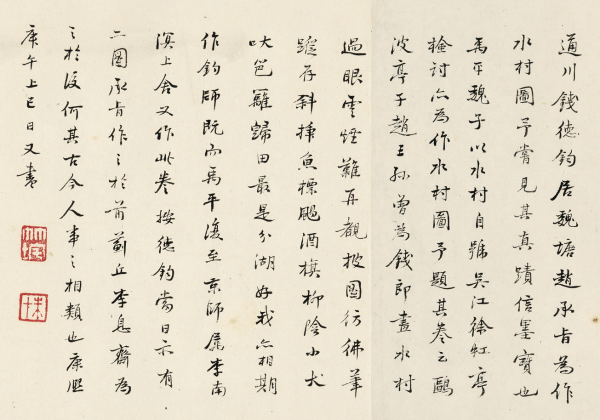 通川錢德鈞居魏塘趙承旨為作
水村圖予嘗見其真蹟信墨寶也
禹平魏子以水村自號吳江徐虹亭
檢討亦為作水村圖予題其卷云鷗
波亭子趙王孫曾為錢郎畫水村
過眼雲煙難再覩披圖彷彿筆
蹤存斜插魚標颺酒旗柳陰小犬
吠笆籬歸田最是分湖好我亦相期
作釣師既而禹平復至京師屬李南
溟上舍又作此卷按德鈞當日亦有
二圖承旨作之於前薊丘李息齋為
之於後何其古今人事之相類也康熙
庚午上巳日又書